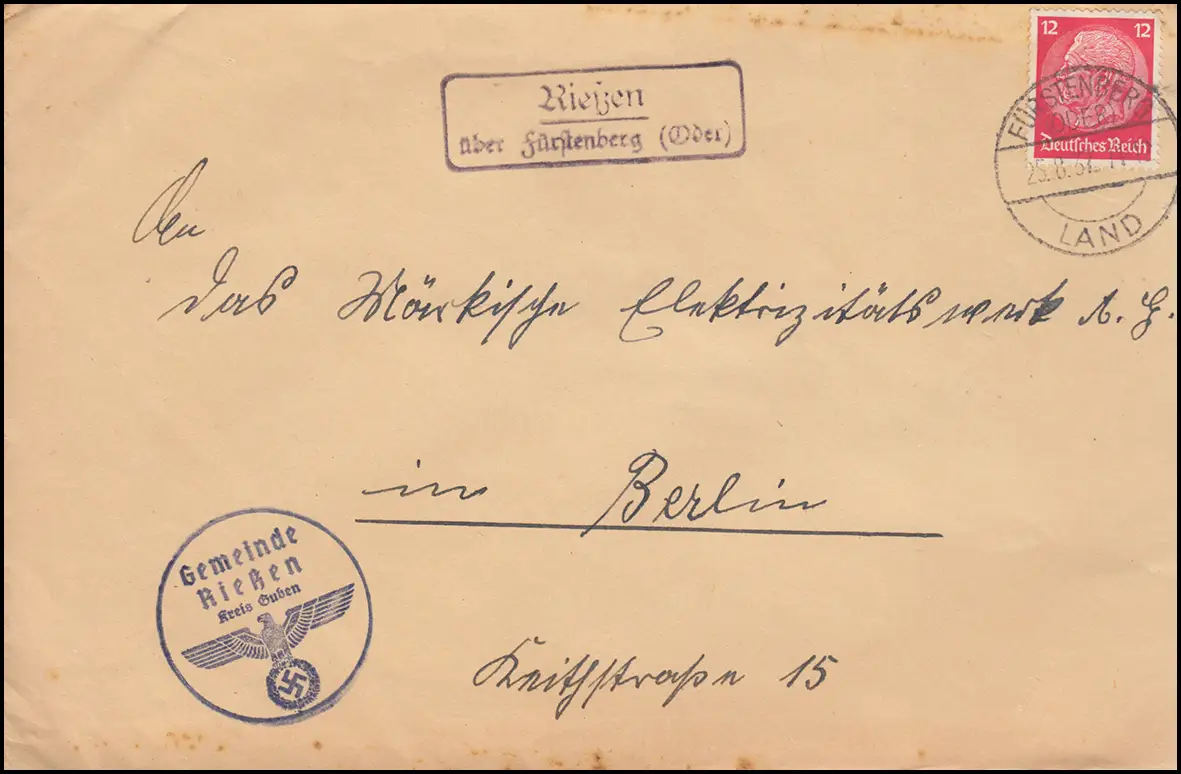 12 12
Deutsches Reich
FÜRSTENBERG
(ODER)
25.8.37.
LAND
Rießen
über Fürstenberg (Oder)
An
das Märkische Elektrizitätswerk A. G.
in Berlin
Keithstraße 15
Gemeinde
Rießen
Kreis Guben